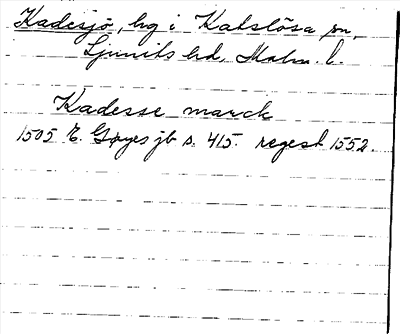 Kadesjö, hg i Katslösa sn,
Ljunits hd, Malm. l.
Kadesse marck
1505 E. Gøyes jb s. 415. regest 1552.